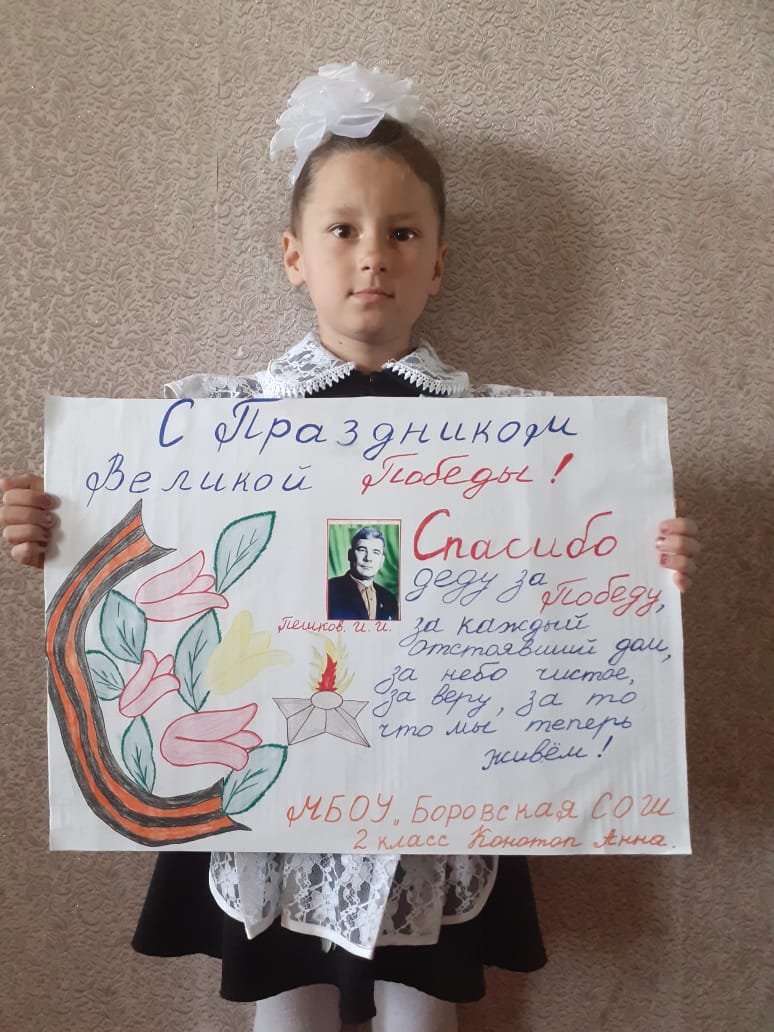 С Праздником
Великой Победы!
Спасибо
деду за
Победу,
за каждый
отстоявший дом,
за небо чистое,
за веру, за то
что мы теперь
живём!
Пешков. И. И.
МБОУ „Боровская СОШ
2 класс Конотоп Анна.